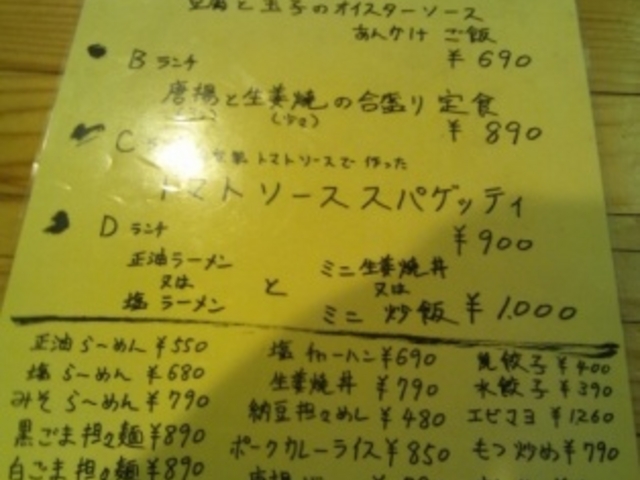 豆腐と玉子のオイスターソース
あんかけ ご飯
B ランチ ¥690
唐揚と生姜焼の合盛り定食
¥890
C
トマトソースで作った
トマトソーススパゲッティ
D ランチ ¥900
正油ラーメン ミニ生姜焼丼
又は と 又は
塩ラーメン ミニ炒飯 ¥1,000
正油らーめん ¥550 塩チャーハン ¥690 餃子 ¥400
塩らーめん ¥680 生姜焼丼 ¥790 水餃子 ¥390
みそらーめん ¥790 納豆担々めし ¥480 エビマヨ ¥1260
黒ごま担々麺 ¥890 ポークカレーライス ¥850 もつ炒め ¥790
白ごま担々麺 ¥890